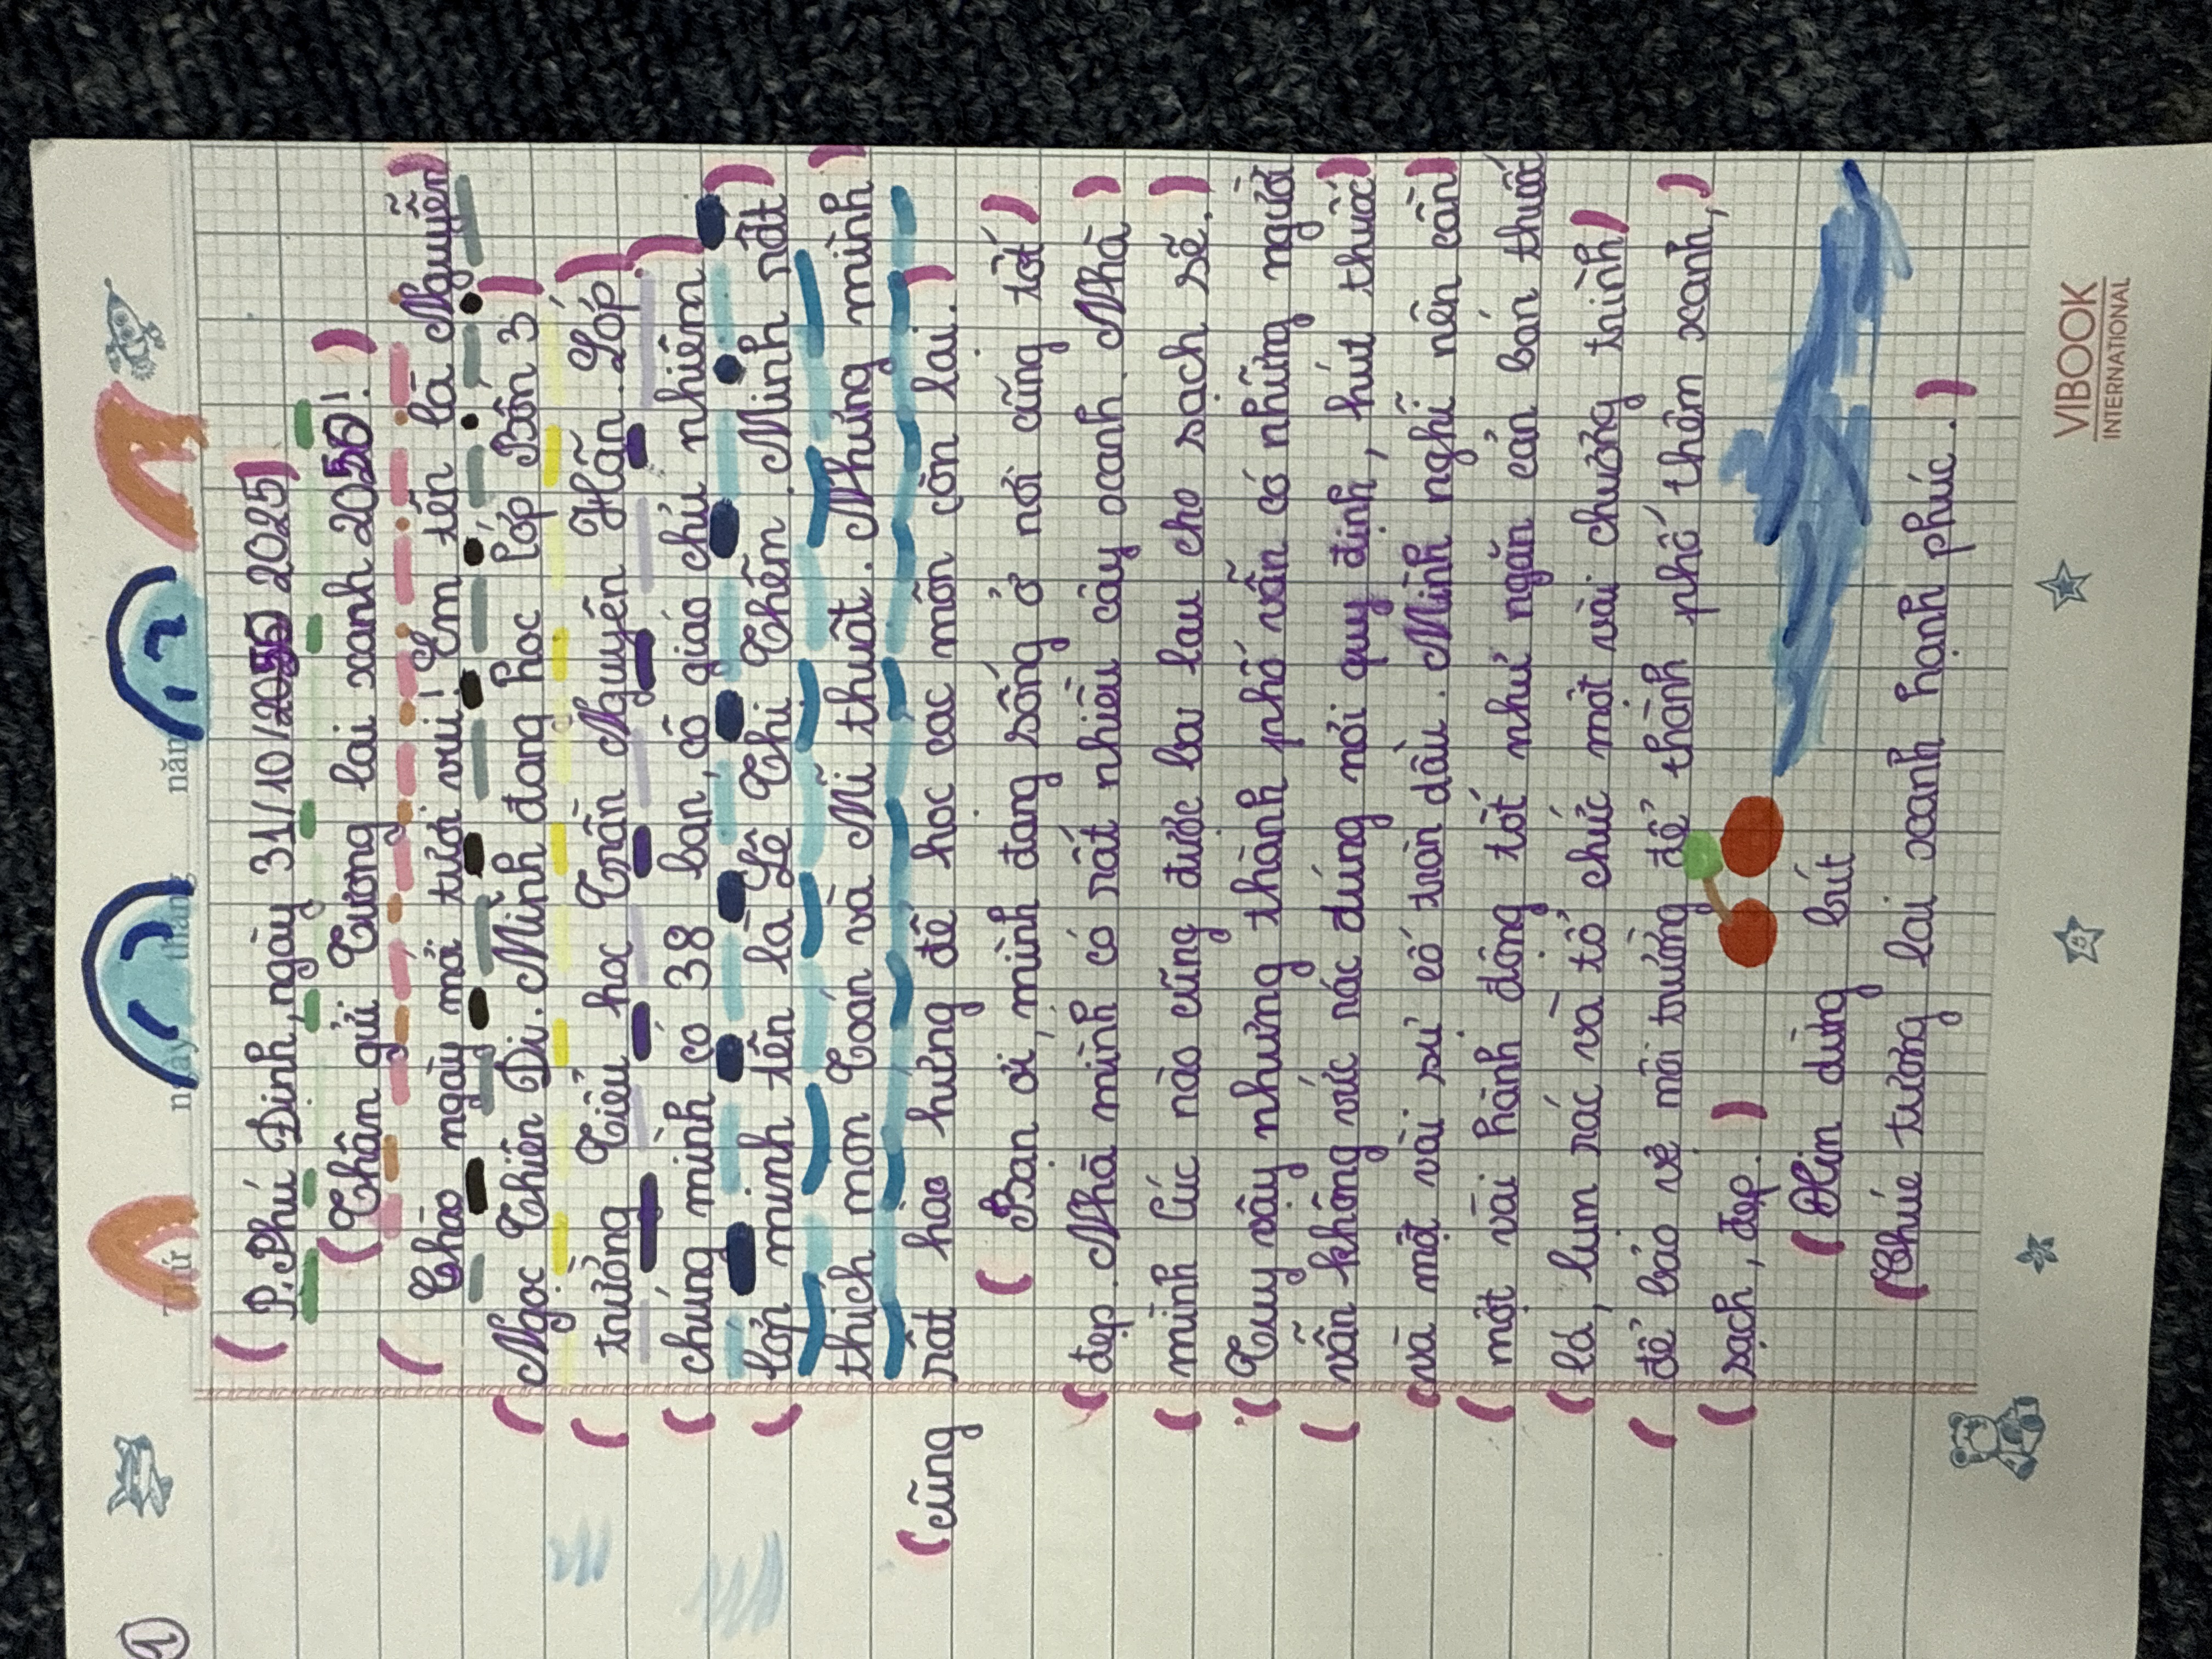 1
Thứ ngày tháng năm
P. Phú Định, ngày 31/10/ 2025
Thân gửi Tương lai xanh 2050!
Chào ngày mới tươi vui! Em tên là Nguyễn
Ngọc Thiên Di. Mình đang học lớp Bốn 3
trường Tiểu học Trần Nguyên Hãn. Lớp
chúng mình có 38 bạn, cô giáo chủ nhiệm
lớp mình tên là Lê Thị Thềm. Mình rất
thích môn Toán và Mĩ thuật. Nhưng mình
cũng rất hào hứng để học các môn còn lại.
Bạn ơi, mình đang sống ở nơi cũng tốt
đẹp. Nhà mình có rất nhiều cây xanh. Nhà
mình lúc nào cũng được lau lau cho sạch sẽ.
Tuy vậy nhưng thành phố vẫn có những người
vẫn không vức rác đúng nơi quy định, hút thuốc
và một vài sự cố tràn dầu. Mình nghĩ nên cần
một vài hành động tốt như ngăn cản bán thuốc
lá, lụm rác và tổ chức một vài chương trình
để bảo vệ môi trường để thành phố thêm xanh,
sạch, đẹp.
Xin dừng bút
Chúc tương lai xanh hạnh phúc.
VIBOOK
INTERNATIONAL